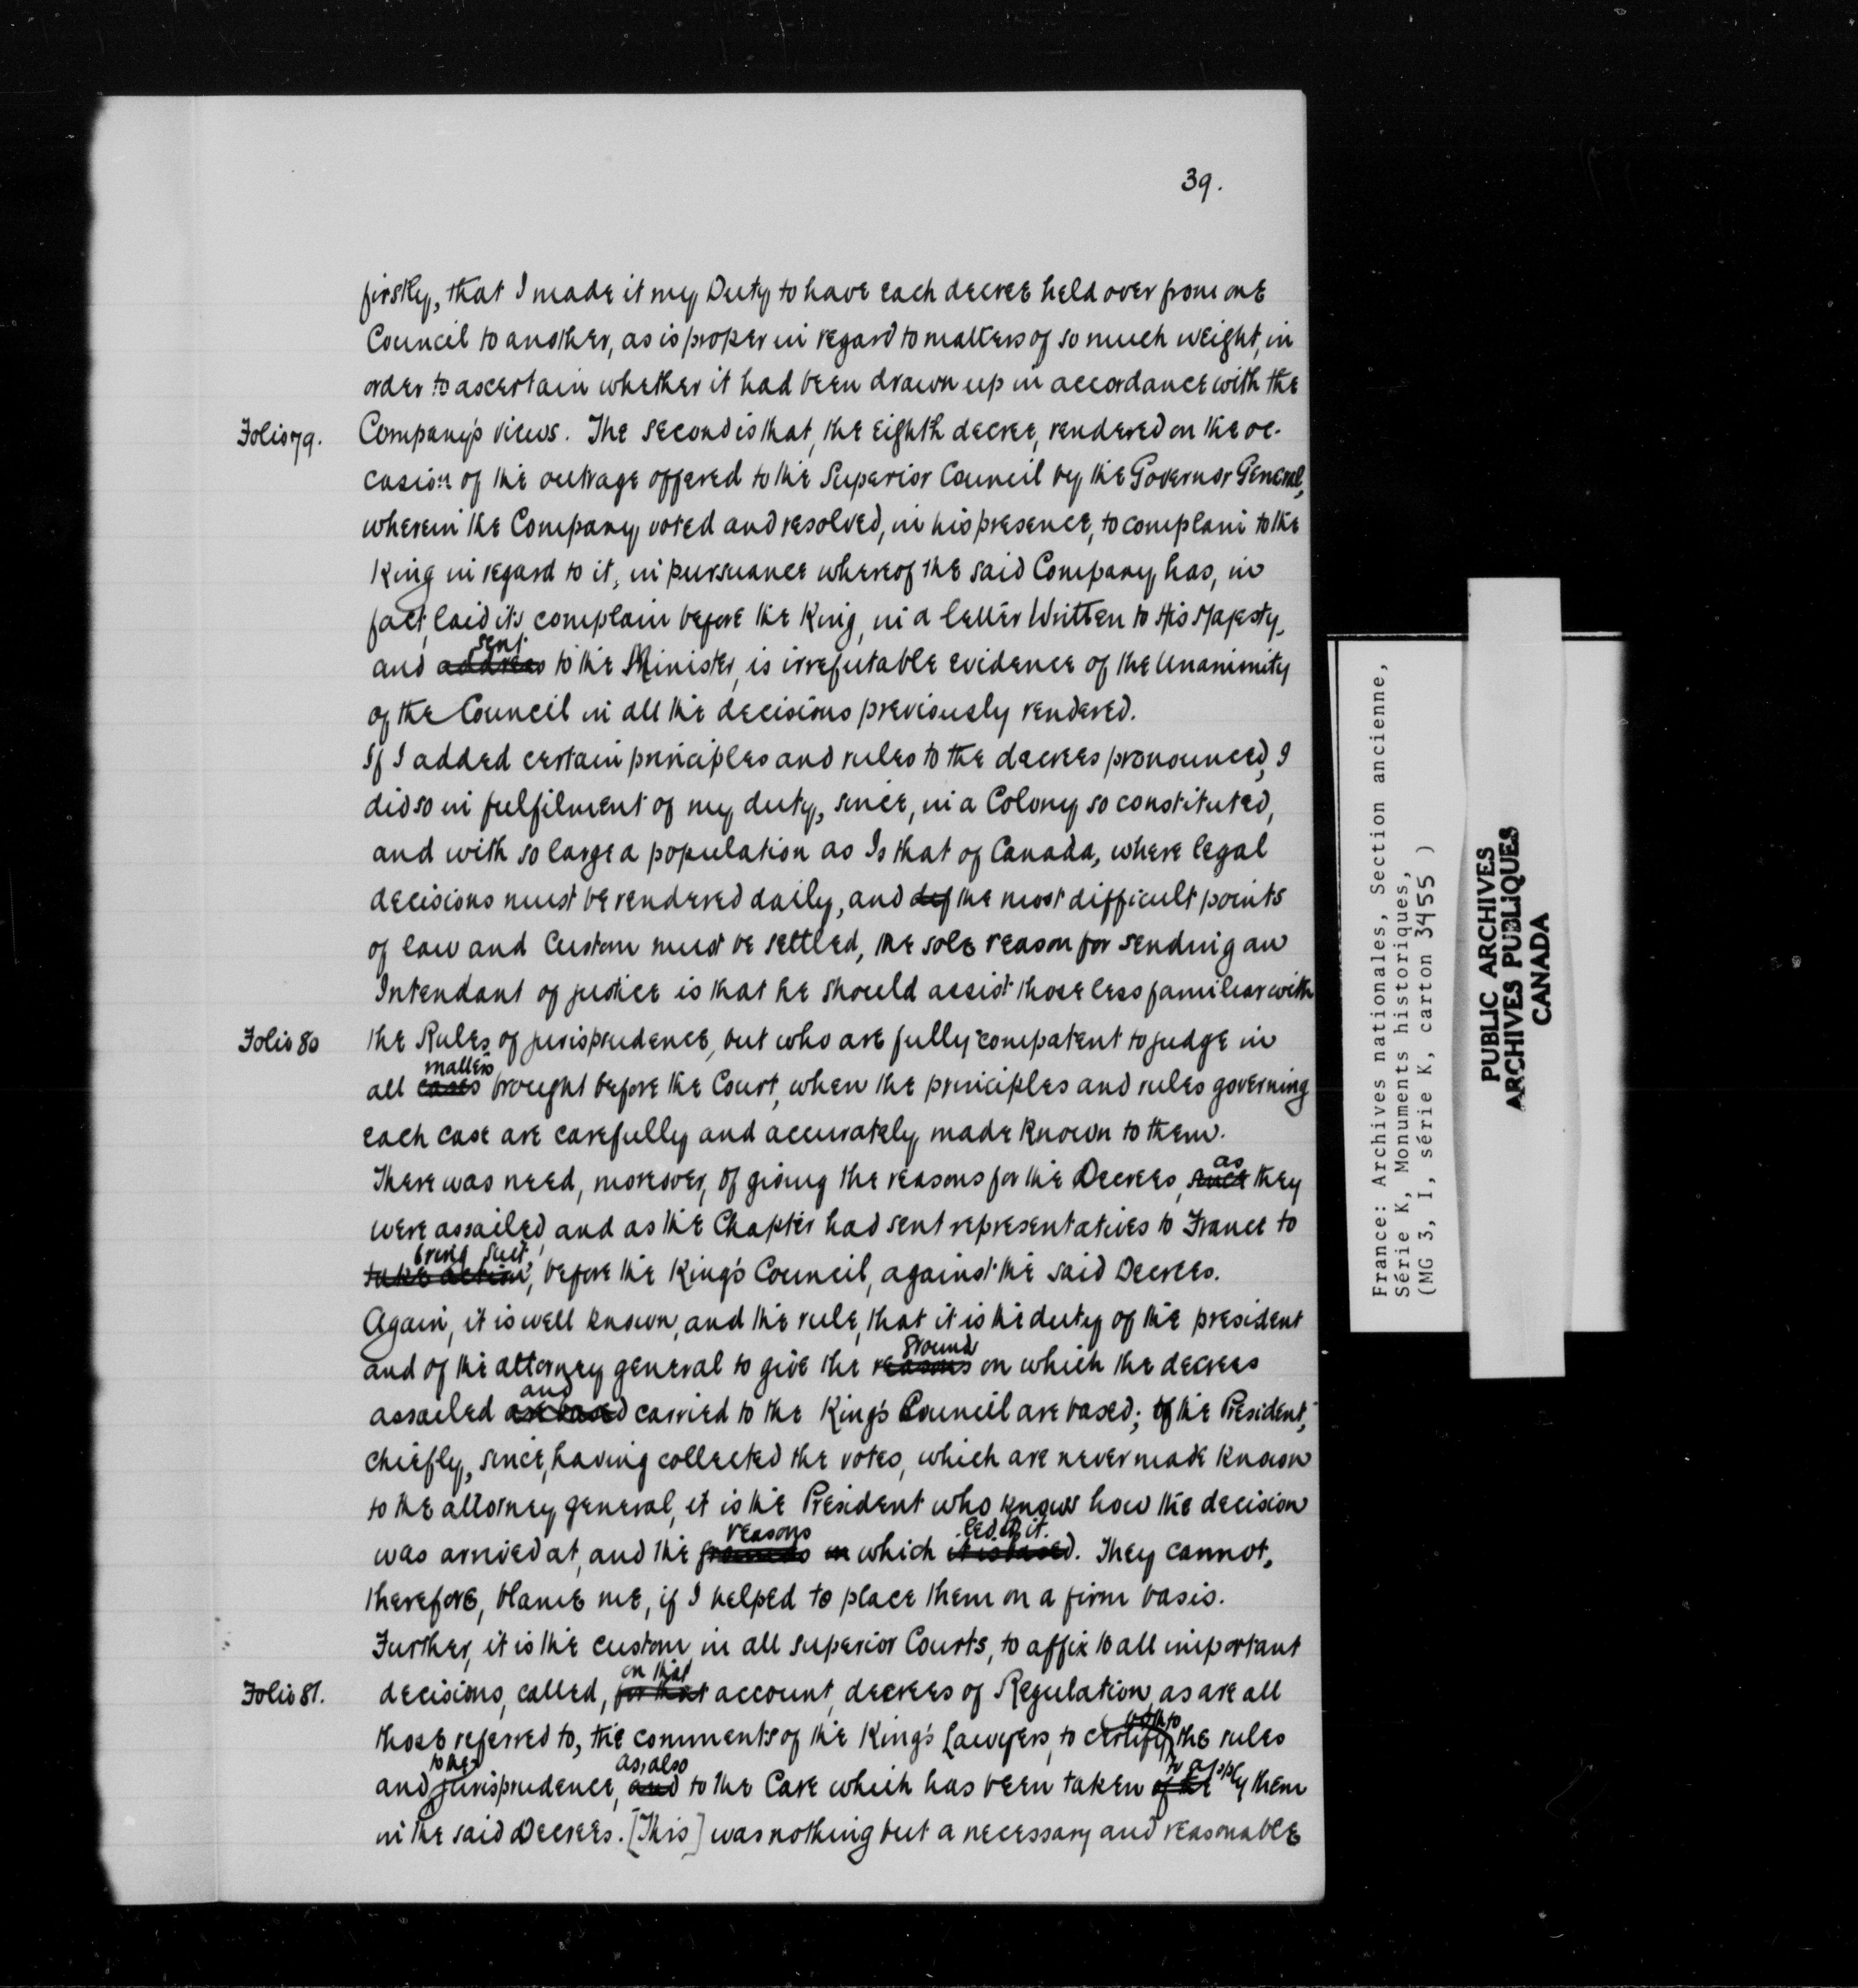 39.
firstly, that I made it my Duty to have each decree held over from one
Council to another, as is proper in regard to matters of so much weight, in
order to ascertain whether it had been drawn up in accordance with the
Folio 79. Company's views. The second is that, the eighth decree, rendered on the oc-
casion of the outrage offered to the Superior Council by the Governor General,
wherein the Company voted and resolved, in his presence, to complain to the
King in regard to it, in pursuance whereof the said Company has, in
fact, laid its complain before the King, in a letter Written to His Majesty,
sent
and address to the Minister, is irrefutable evidence of the Unanimity
of the Council in all the decisions previously rendered.
If I added certain principles and rules to the decrees pronounced, I
did so in fulfilment of my duty, since, in a Colony so constituted,
and with so large a population as Is that of Canada, where legal
decisions must be rendered daily, and def the most difficult points
of law and Custom must be settled, the sole reason for sending an
Intendant of justice is that he should assist those less familiar with
Folio 80 the Rules of jurisprudence, but who are fully compatent to judge in
matters
all cases brought before the Court, when the principles and rules governing
each case are carefully and accurately made known to them.
as
There was need, moreover, of giving the reasons for the Decrees, since they
were assailed, and as the Chapter had sent representatives to France to
bring suit,
take action, before the King's Council, against the said Decrees.
Again, it is well known, and the rule, that it is the duty of the president
ground
and of the attorney general to give the reasons on which the decrees
and
assailed are based carried to the King's Council are based; of the President,
chiefly, since, having collected the votes, which are never made known
to the attorney general, it is the President who knows how the decision
reasons led to it.
was arrived at, and the grounds on which it is based. They cannot,
therefore, blame me, if I helped to place them on a firm basis.
Further, it is the custom in all superior Courts, to affix to all important
on that
Folio 81. decisions, called, for that account, decrees of Regulation, as are all
both to
those referred to, the comments of the King's Lawyers, to certify the rules
to the as, also to apply
and jurisprudence, and to the Care which has been taken of the them
in the said Decrees. [This] was nothing but a necessary and reasonable
France: Archives nationales, Section ancienne,
Série K, Monuments historiques,
(MG 3, I, série K, carton 3455 )
PUBLIC ARCHIVES
ARCHIVES PUBLIQUES
CANADA